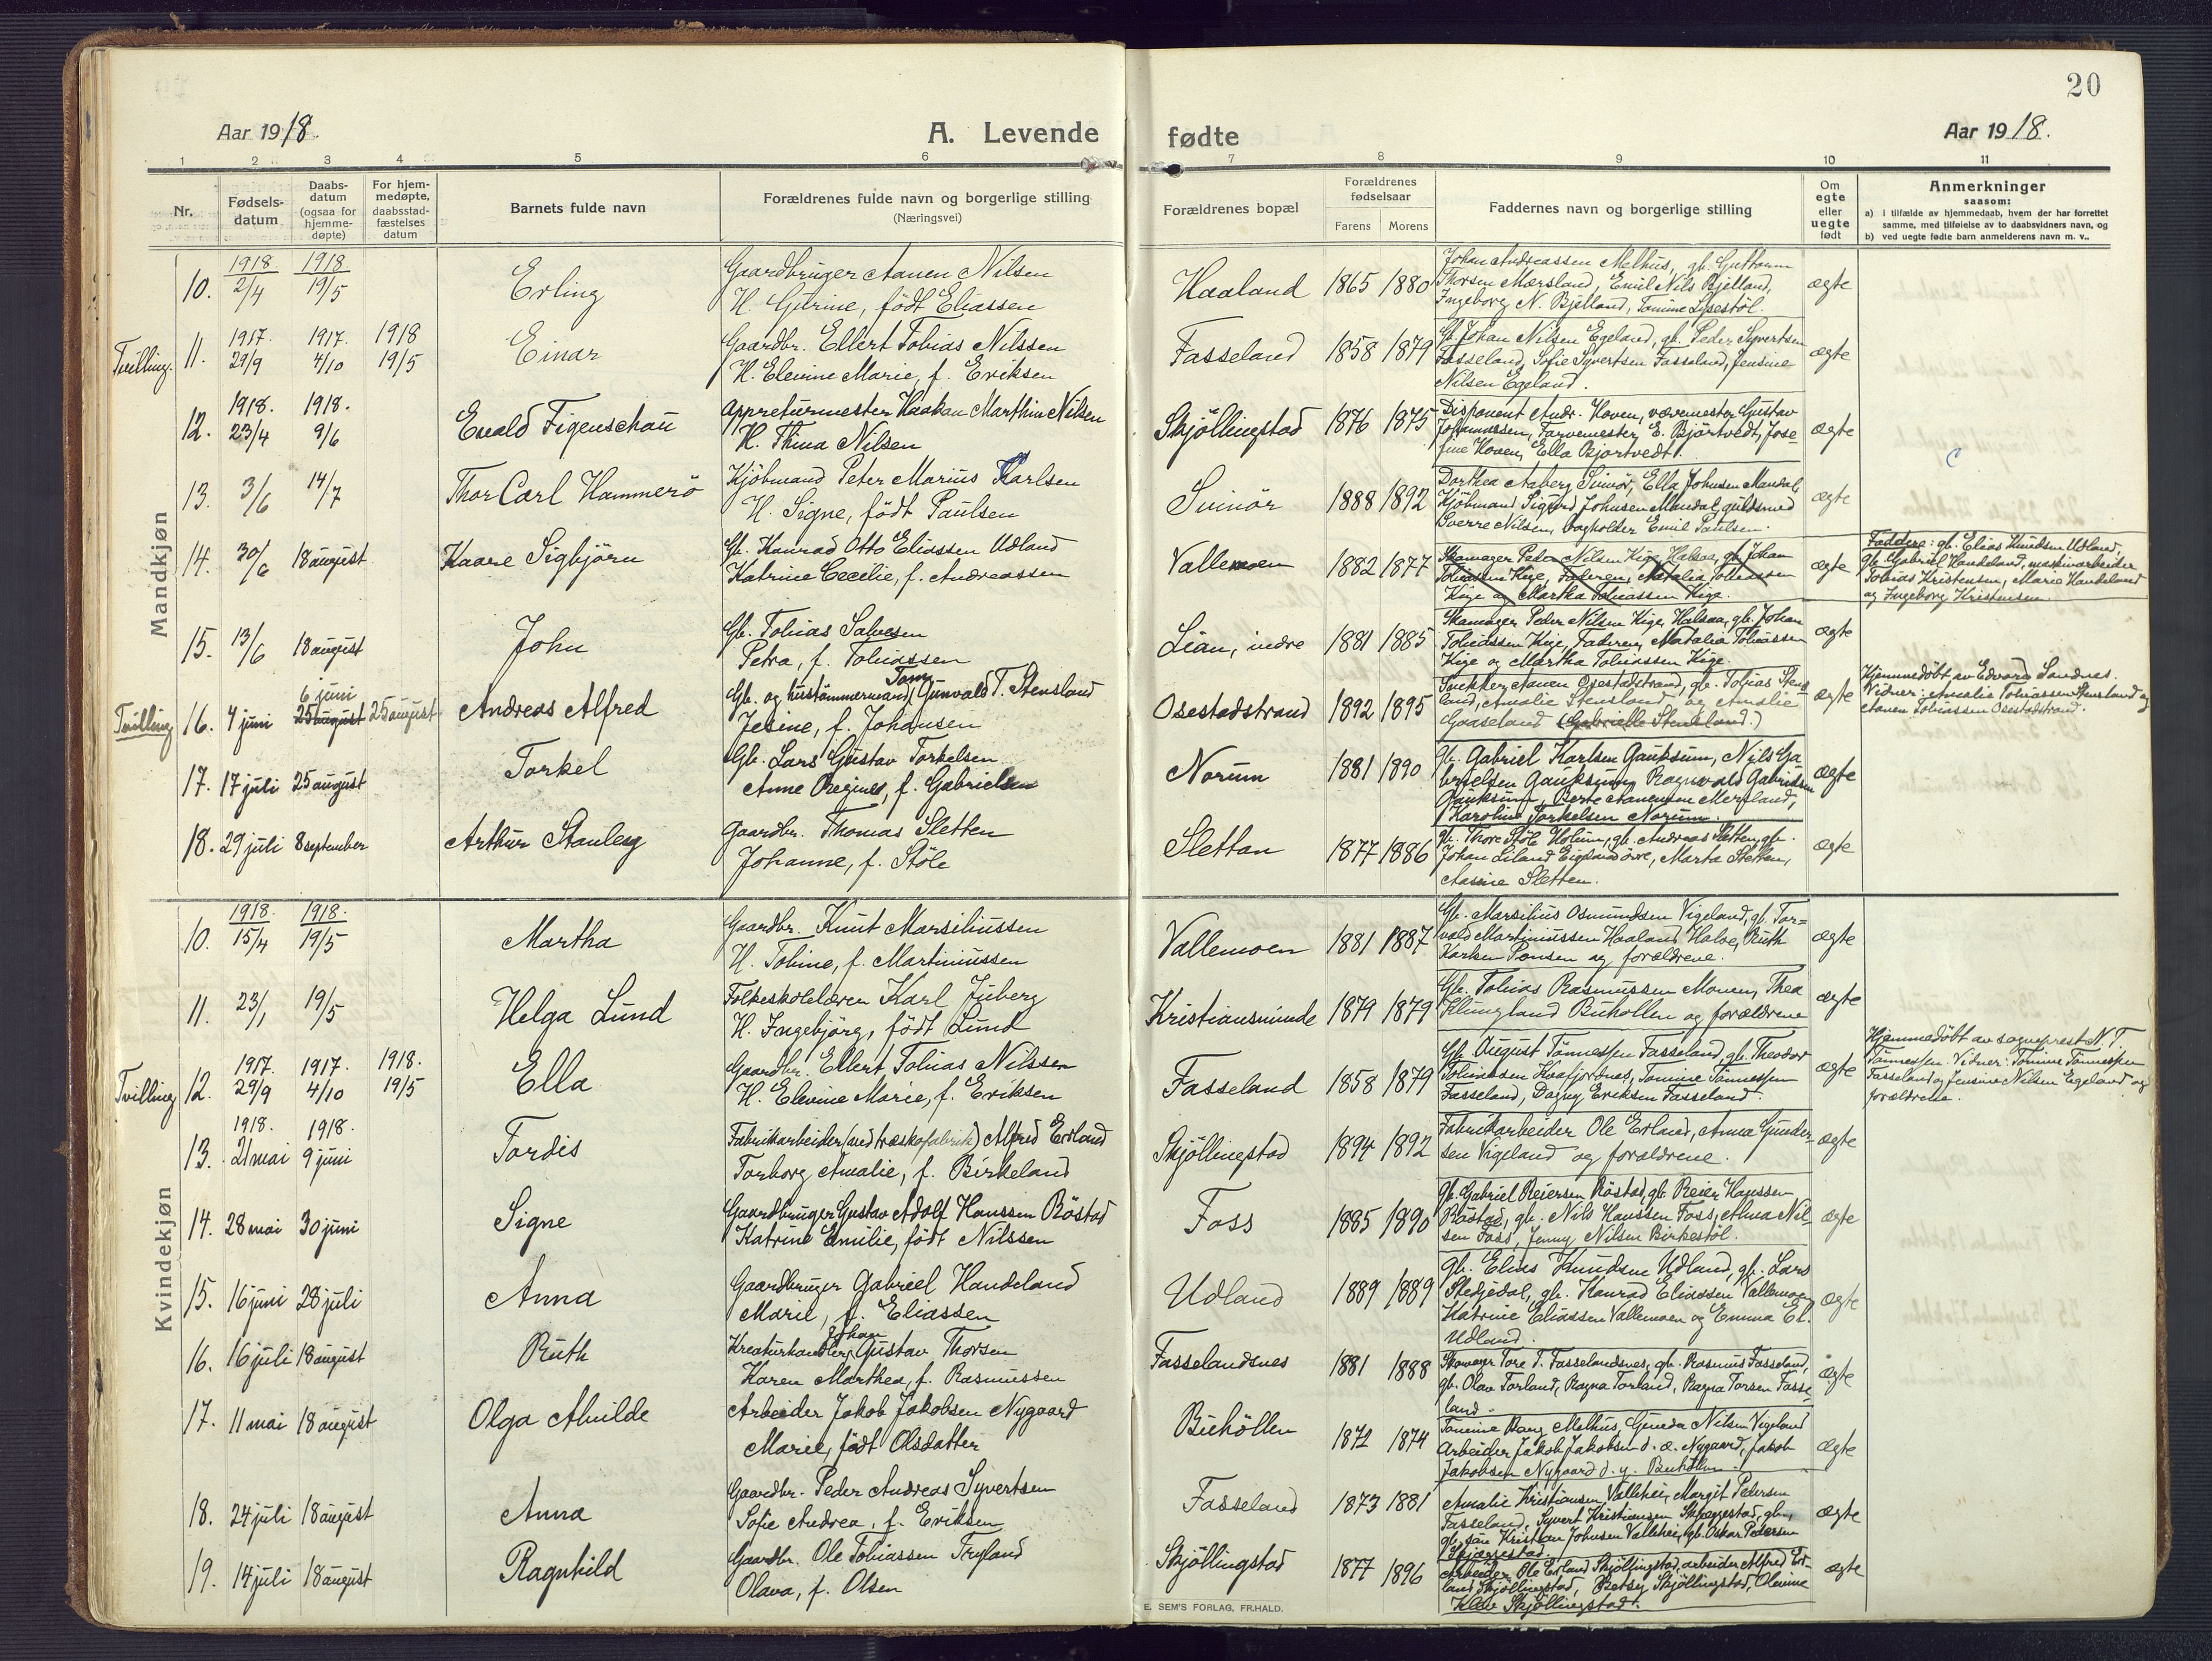 20
Aar 1918.
A. Levende fødte
Aar 1918.
1 2 3 4 5 6 7 8 9 10 11
Nr.
Fødselsdatum
Daabsdatum (ogsaa for hjemmedøpte)
For hjemmedøpte, daabsstadfæstelses datum
Barnets fulde navn
Forældrenes fulde navn og borgerlige stilling
(Næringsvei)
Forældrenes bopæl
Forældrenes fødselsaar
Farens Morens
Faddernes navn og borgerlige stilling
Om egte eller uegte født
Anmerkninger
saasom:
a) i tilfælde av hjemmedaab, hvem der har forrettet samme, med tilføielse av to daabsvidners navn, og
b) ved uegte fødte barn anmelderens navn m. v..
Mandkjøn
10. 1918 2/4 1918 19/5 Erling
Gaardbruger Aanen Nilsen
H. Gurine, født Eliassen
Haaland 1865 1880
Johan Andreassen Melhus, gb. Guttorm
Thorsen Mærsland, Emil Nils Bjelland,
Ingeborg N. Bjelland, Tomine Lysestøl.
ægte
Tvilling. 11. 1917. 29/9 1917. 4/10 1918 19/5 Einar
Gaardbr. Ellert Tobias Nilssen
H. Elevine Marie, f. Eriksen
Fasseland 1858 1879
Gb. Johan Nilsen Egeland, gb. Peder Syvertsen
Fasseland, Sofie Syvertsen Fasseland, Jensine
Nilsen Egeland.
ægte
12. 1918. 23/4 1918. 9/6 Evald Figenschau
Appreturmester Haakon Marthin Nilsen
H. Thina Nilsen
Skjöllingstad 1876 1875
Disponent Andr. Hoven, værvemester Gustav
Johannessen, Farvemester E. Bjørtvedt, Jose-
fine Hoven, Ella Bjørtvedt.
ægte
13. 3/6 14/7 Thor Carl Hammerö
Kjöbmand Peter Marius Karlsen
H. Signe, født Paulsen
Svinör 1888 1892
Dorthea Aaberg Svinör, Ella Johnsen Mandal,
Kjöbmand Sigurd Johnsen Mandal, guldsmed
Sverre Nilsen, bogholder Emil Paulsen.
ægte
14. 30/6 18 august Kaare Sigbjörn
Gb. Konrad Otto Eliassen Udland
Katrine Cecilie, f. Andreassen
Vallemoen 1882 1877
Skomager Peder Nilsen Kige, Halsaa, gb. Johan
Tobiassen Kige, Faderen, Natalia Tobiassen
Kige og Martha Tobiassen Kige.
ægte
Faddere: gb. Elias Knudsen Udland,
gb. Gabriel Handeland, maskinarbeider
Tobias Kristensen, Marie Handeland
og Ingeborg Kristensen.
15. 13/6 18 august John
Gb. Tobias Salvesen
Petra, f. Tobiassen
Lian, indre 1881 1885
Skomager Peder Nilsen Kige, Halsaa, gb. Johan
Tobiassen Kige, Faderen, Natalia Tobiassen
Kige og Martha Tobiassen Kige.
ægte
Tvilling 16. 4 juni 6 juni 25 august 25 august Andreas Alfred
Gb. og hustömmermand Tom Gunvald T. Stensland
Jesine, f. Johansen
Osestadstrand 1892 1895
Snekker Aanen Osestadstrand, gb. Tobias Stens-
land, Amalie Stensland og Amalie
Gaaseland (Gabrielle Stensland.)
ægte
Hjemmedöbt av Edvard Sandnes.
Vidner: Amalie Tobiassen Stensland og
Aanen Tobiassen Osestadstrand.
17. 17 juli 25 august Torkel
Gb. Lars Gustav Torkelsen
Anne Regine, f. Gabrielsen
Norum 1881 1890
gb. Gabriel Karlsen Gauksum, Nils Ga
brielsen Gauksum, Ragnvald Gabrielsen
Gauksum, Berte Aanensen Mersland,
Karoline Torkelsen Norum.
ægte
18. 29 juli 8 september Arthur Stanley
Gaardbr. Thomas Sletten
Johanne, f. Støle
Slettan 1877 1886
gb. Thore Støle Holum, gb. Andreas Sletten, gb.
Johan Liland Eigeland övre, Marta Sletten,
Aasine Sletten.
ægte
Kvindekjøn
10. 1918. 15/4 1918. 19/5 Martha
Gaardbr. Knut Marsiliussen
H. Tobine, f. Martiniussen
Vallemoen 1881 1887
Gb. Marsilius Osmundsen Vigeland, gb. Tor-
vald Martiniussen Haaland, Halse, Ruth
Karlsen Ponsen og forældrene.
ægte
11. 23/1 19/5 Helga Lund
Folkeskolelærer Karl Juberg
H. Ingebjörg, født Lund
Kristiansminde 1879 1879
Gb. Tobias Rasmussen Monen, Thea
Klungland Buhollen og forældrene
ægte
Tvilling 12. 1917. 29/9 1917. 4/10 1918. 19/5 Ella
Gaardbr. Ellert Tobias Nilssen
H. Elevine Marie, f. Eriksen
Fasseland 1858 1879
Gb. August Tönnessen Fasseland, gb. Theodor
Tobiassen Kaafjordnes, Tomine Tönnessen
Fasseland, Dagny Eriksen Fasseland.
ægte
Hjemmedöbt av sogneprest N. T.
Tönnessen. Vidner: Tomine Tönnessen
Fasseland og Jensine Nilsen Egeland og
forældrene.
13. 1918. 21 mai 1918. 9 juni Tordis
Fabrikarbeider (ved træskofabrik) Alfred Erland
Torborg Amalie, f. Birkeland
Skjöllingstad 1894 1892
Fabrikarbeider Ole Erland, Anna Gunder-
sen Vigeland og forældrene.
ægte
14. 28 mai 30 juni Signe
Gaardbruger Gustav Adolf Hanssen Röstad
Katrine Emilie, født Nilssen
Foss 1885 1890
gb. Gabriel Reiersen Röstad, gb. Reier Hanssen
Röstad, gb. Nils Hanssen Foss, Alma Nil-
sen Foss, Jenny Nilsen Birkestöl.
ægte
15. 16 juni 28 juli Anna
Gaardbruger Gabriel Handeland
Marie, f. Eliassen
Udland 1889 1889
gb. Elias Knudsen Udland, gb. Lars
Stedjedal, gb. Konrad Eliassen Vallemoen,
Katrine Eliassen Vallemoen og Emma El.
Udland.
ægte
16. 16 juli 18 august Ruth
Kreaturhandler Johan Gustav Thorsen
Karen Marthea, f. Rasmussen
Fasselandsnes 1881 1888
Skomager Tore T. Fasselandsnes, gb. Rasmus Fasseland,
gb. Olav Torland, Ragna Torland, Ragna Torsen Fasse
land.
ægte
17. 11 mai 18 august Olga Alvilde
Arbeider Jakob Jakobsen Nygaard
Marie, født Olsdatter
Buhöllen 1872 1874
Tomine Berg Melhus, Gunda Nilsen Vigeland
Arbeider Jakob Jakobsen d. æ. Nygaard, Jakob
Jakobsen Nygaard d. y. Buhöllen.
ægte
18. 24 juli 18 august Anna
Gaardbr. Peder Andreas Syvertsen
Sofie Andrea, f. Eriksen
Fasseland 1873 1881
Amalie Kristiansen, Vallehei, Margit Pedersen
Fasseland, Syvert Kristiansen Skjæggestad, gbr.,
gb. Jan Kristian Johnsen Vallehei, gb. Oskar Pedersen
Skjæggestad.
ægte
19. 14 juli 18 august Ragnhild
Gaardbr. Ole Tobiassen Tryland
Olava, f. Olsen
Skjöllingstad 1877 1896
Arbeider Ole Erland Skjöllingstad, arbeider Alfred Er-
land Skjöllingstad, Betsy Skjöllingstad, Olevine
Kleve Skjöllingstad.
ægte
E. SEM'S FORLAG, FR.HALD.